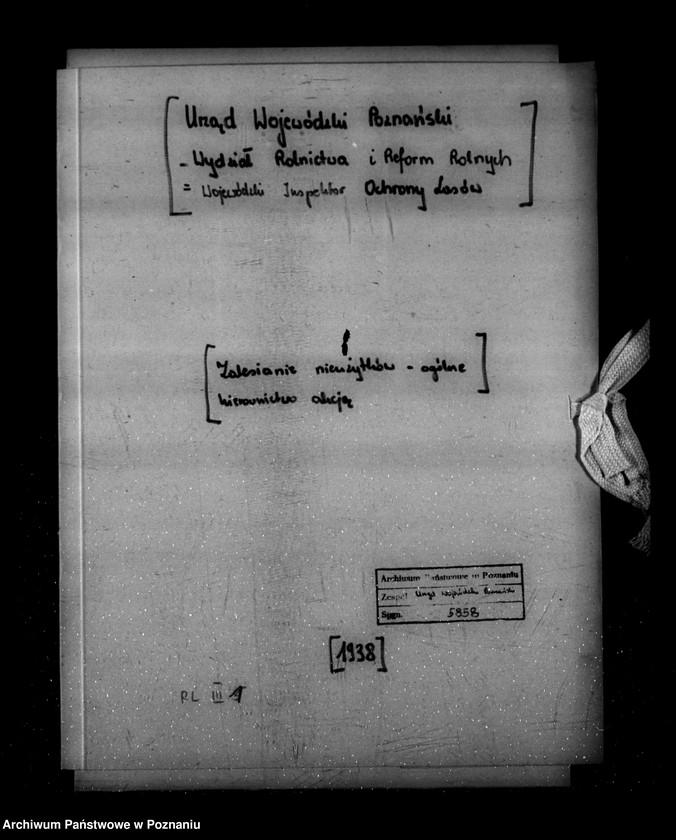 [Urząd Wojewódzki Poznański
- Wydział Rolnictwa i Reform Rolnych
= Wojewódzki Inspektor Ochrony Lasów]
[Zalesianie nieużytków - ogólne
kierownictwo akcją]
Archiwum Państwowe w Poznaniu
Zespół Urząd Wojewódzki Poznański
Sygn. 5858
[1938]
RL III 1
Archiwum Państwowe w Poznaniu